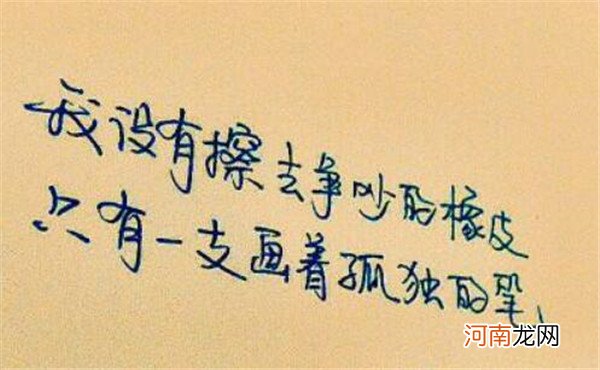 我没有擦去争吵的橡皮
只有一支画着孤独的笔、
河南龙网